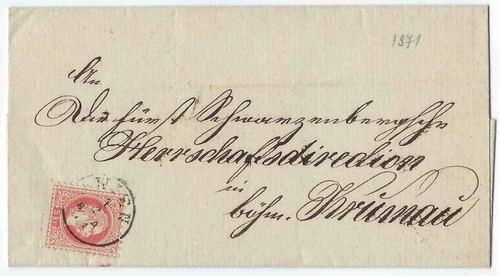 1871
An
Die fürst Schwarzenbergsche
Herrschaftsdirection
in
böhm. Krumau